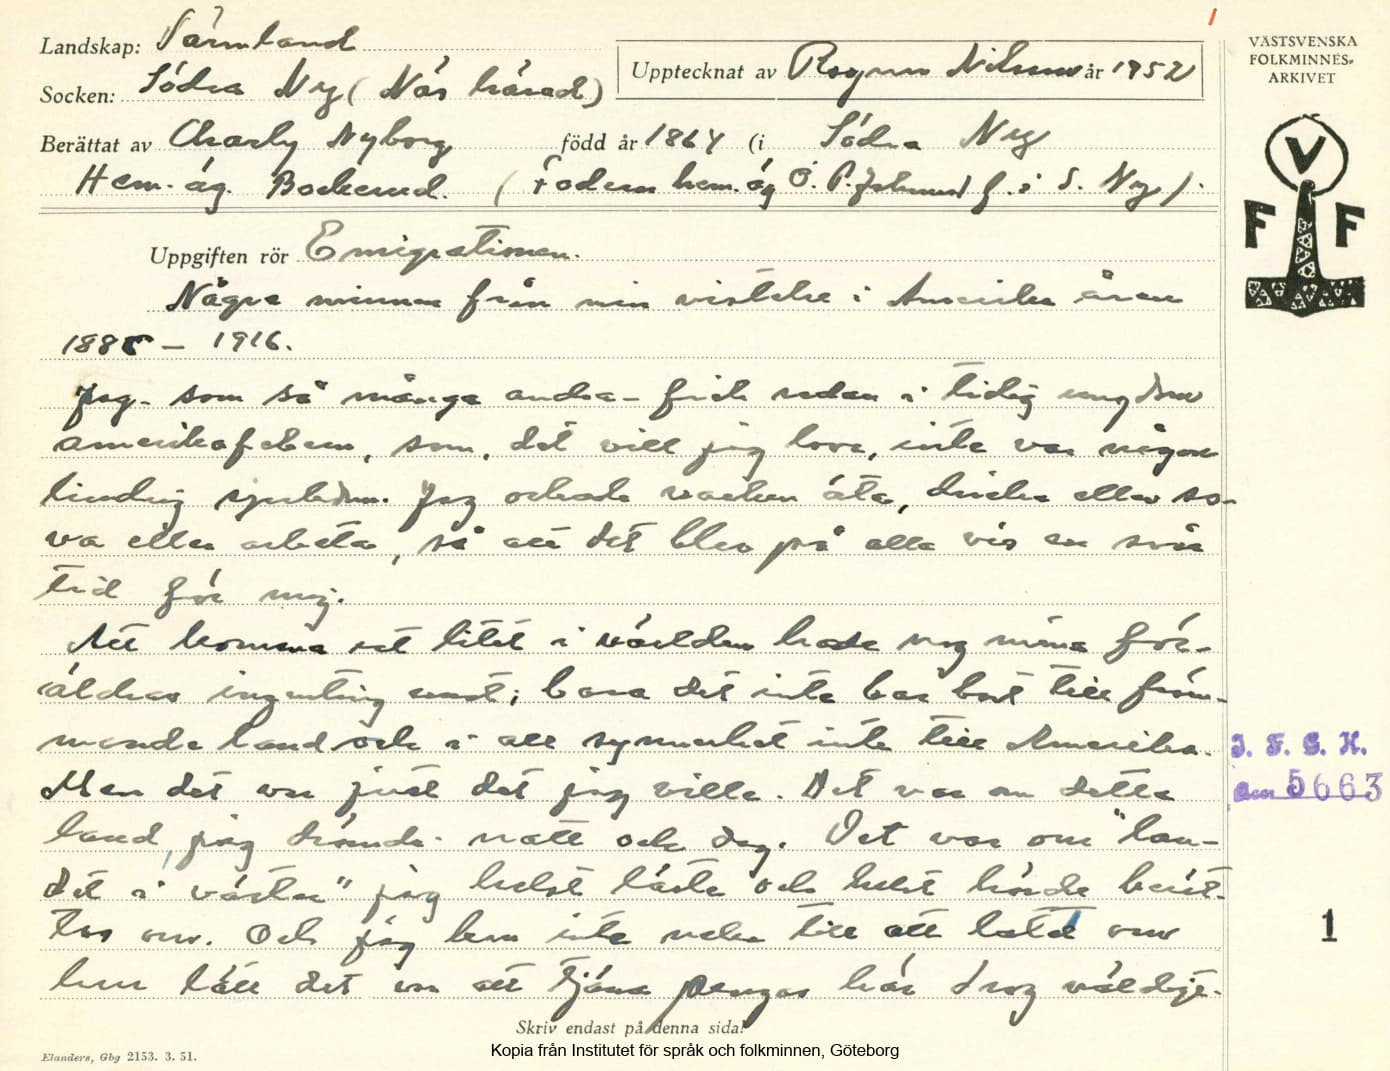 Landskap: Värmland
Socken: Södra Ny (Näs härad)
Upptecknat av Ragnar Nilsson år 1952
VÄSTSVENSKA
FOLKMINNES-
ARKIVET
Berättat av Charly Nyborg född år 1864 (i Södra Ny
Hem. äg. Backerud. (Fadern hem. äg O. P. Johnsson f. i S. Ny).
V
F F
Uppgiften rör Emigrationen.
Några minnen från min vistelse i Amerika åren
1885 – 1916.
Jag - som så många andra - fick redan i tidig ungdom
amerikafebern, som, det vill jag lova, inte var någon
lindrig sjukdom. Jag orkade varken äta, dricka eller so-
va eller arbeta, så att det blev på alla vis en svår
tid för mig.
Att komma ut litet i världen hade nog mina för-
äldrar ingenting emot; bara det inte bar bort till främ-
mande land och i all synnerhet inte till Amerika.
Men det var just det jag ville. Det var om detta
land, jag drömde natt och dag. Det var om "lan-
det i väster" jag helst läste och helst hörde berät-
tas om. Och jag kan inte neka till att talet om
hur lätt det var att tjäna pengar här drog väldigt.
J. F. G. H.
acc 5663
1
Skriv endast på denna sida!
Elanders, Gbg 2153. 3. 51.
Kopia från Institutet för språk och folkminnen, Göteborg